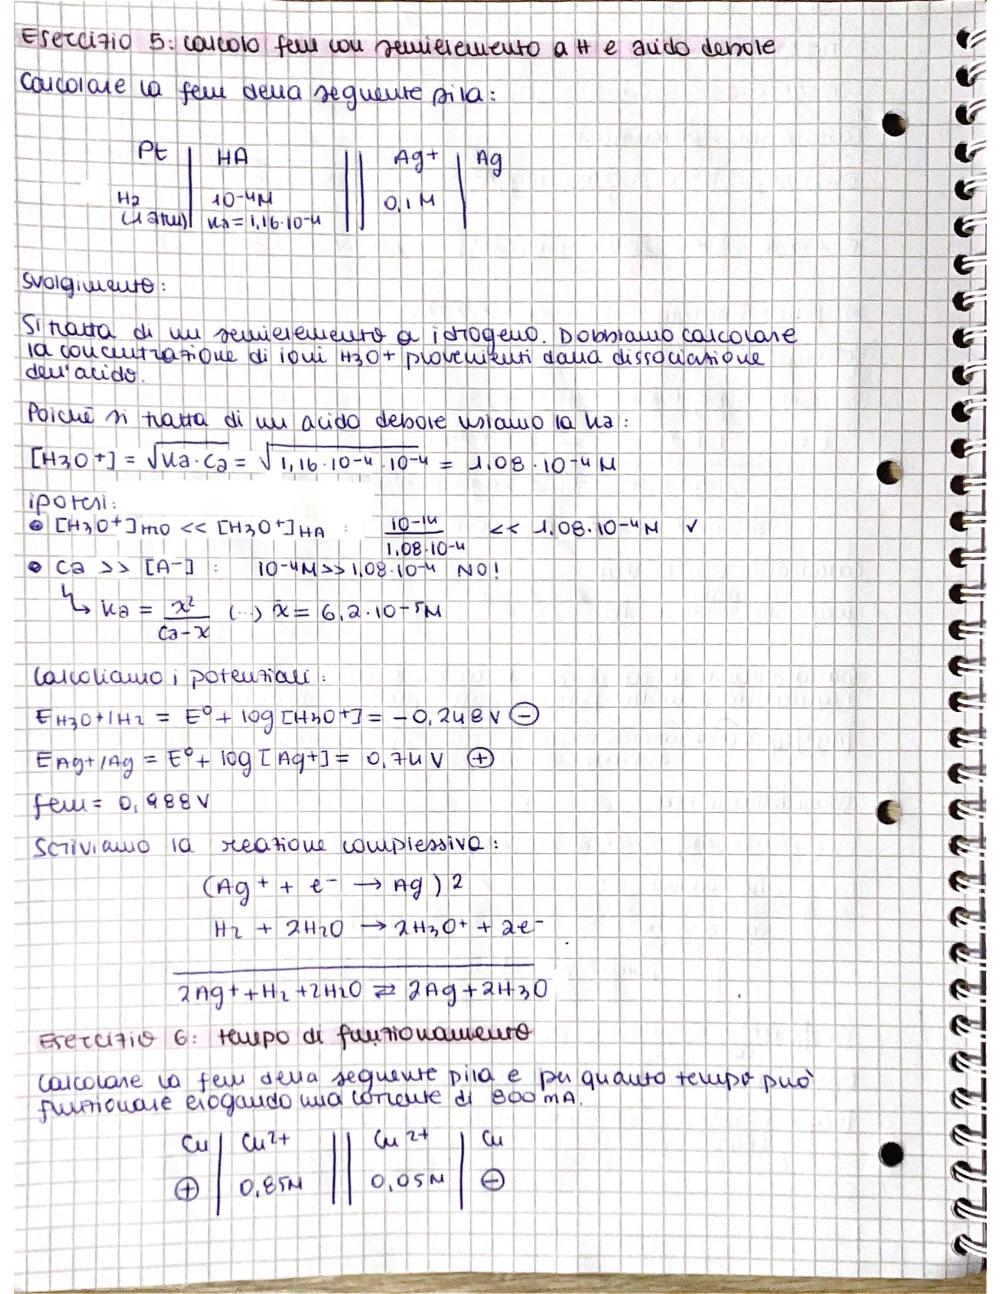 Esercizio 5: calcolo fem con semielemento a H e acido debole
Calcolare la fem della seguente pila:
Pt | HA || Ag+ | Ag
H2 10-4M 0,1 M
(1 atm) Ka = 1,16·10-4
Svolgimento:
Si tratta di un semielemento a idrogeno. Dobbiamo calcolare
la concentrazione di ioni H3O+ provenienti dalla dissociazione
dell'acido.
Poiché si tratta di un acido debole usiamo la Ka:
[H3O+] = √Ka·Ca = √1,16·10-4·10-4 = 1,08·10-4 M
ipotesi:
• [H3O+]H2O << [H3O+]HA : 10-14/1,08·10-4 << 1,08·10-4M ✓
• Ca >> [A-] : 10-4M >> 1,08·10-4 NO!
↳ Ka = x²/Ca-x (...) x = 6,2·10-5M
Calcoliamo i potenziali:
EH3O+/H2 = E° + log [H3O+] = -0,248 V ⊖
EAg+/Ag = E° + log [Ag+] = 0,74 V ⊕
fem = 0,988 V
Scriviamo la reazione complessiva:
(Ag+ + e- → Ag) 2
H2 + 2H2O → 2H3O+ + 2e-
2Ag+ + H2 + 2H2O ⇄ 2Ag + 2H3O
Esercizio 6: tempo di funzionamento
Calcolare la fem della seguente pila e per quanto tempo può
funzionare erogando una corrente di 800 mA.
Cu | Cu2+ || Cu2+ | Cu
⊕ 0,85M 0,05M ⊖